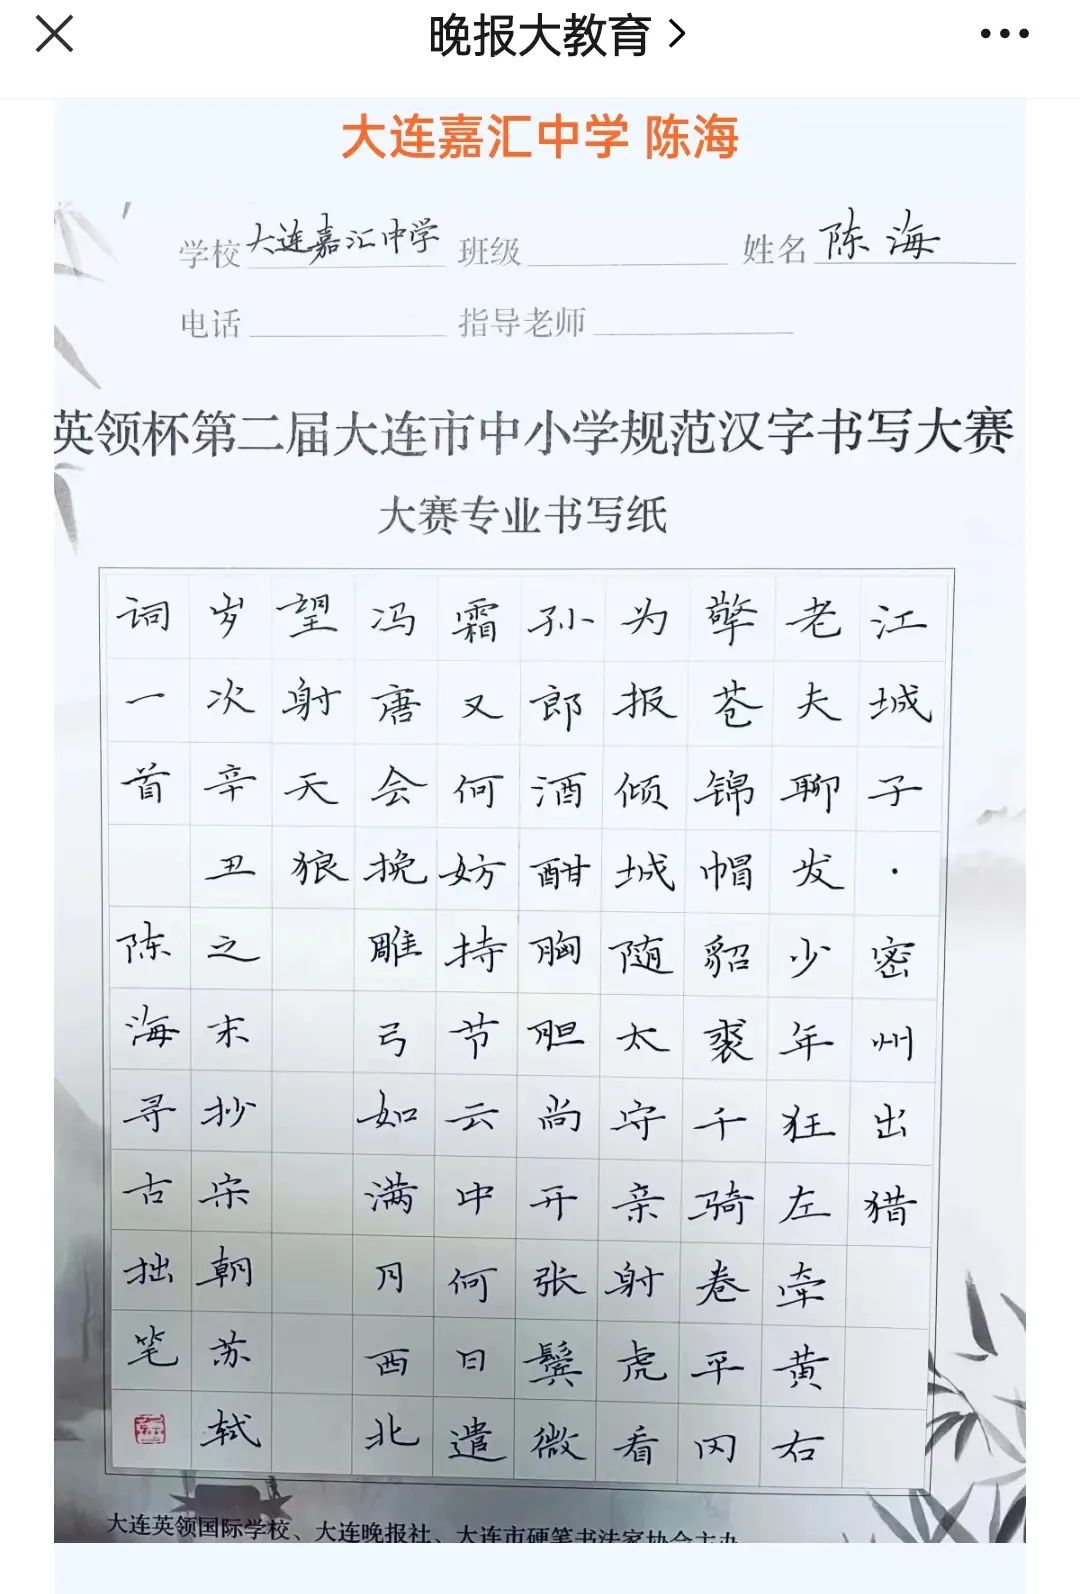 晚报大教育
大连嘉汇中学 陈海
学校 大连嘉汇中学 班级 姓名 陈海
电话 指导老师
英领杯第二届大连市中小学规范汉字书写大赛
大赛专业书写纸
江城子·密州出猎
老夫聊发少年狂左牵黄右
擎苍锦帽貂裘千骑卷平冈
为报倾城随太守亲射虎看
孙郎酒酣胸胆尚开张鬓微
霜又何妨持节云中何日遣
冯唐会挽雕弓如满月西北
望射天狼
岁次辛丑之末抄宋朝苏轼
词一首 陈海寻古拙笔
大连英领国际学校、大连晚报社、大连市硬笔书法家协会主办